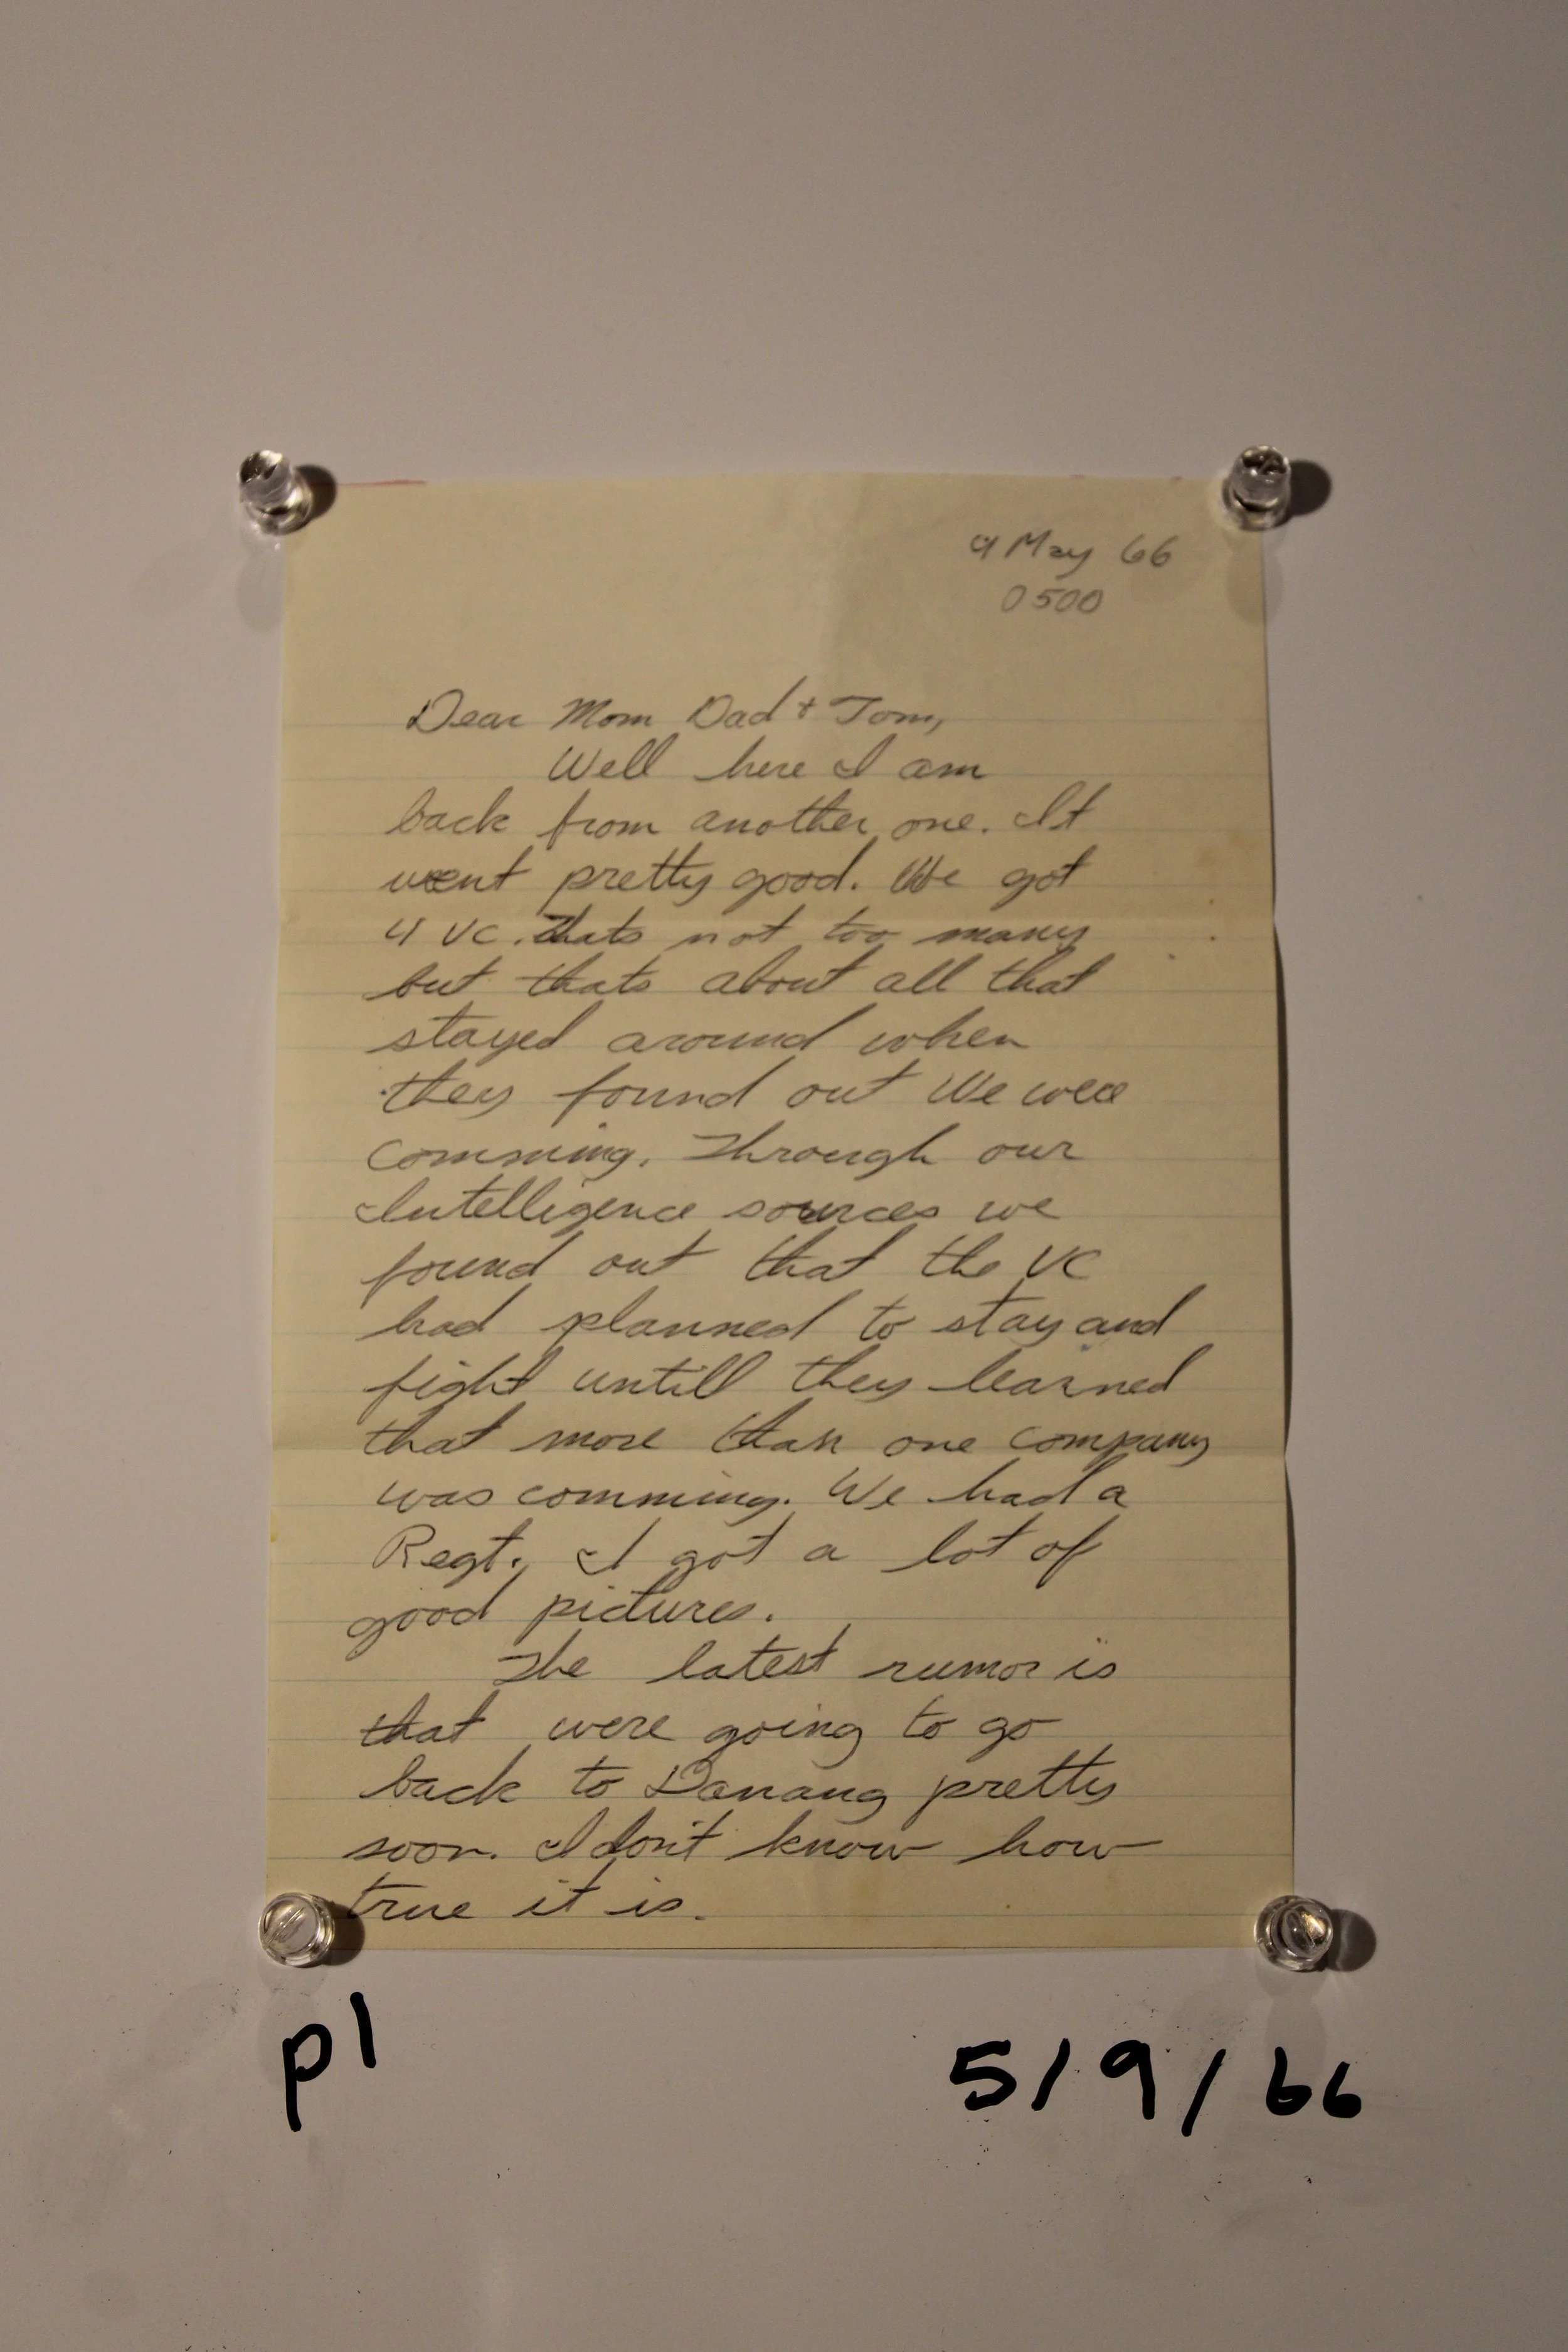 9 May 66
0500
Dear Mom Dad + Tom,
Well here I am
back from another one. It
went pretty good. We got
4 VC. Thats not too many
but thats about all that
stayed around when
they found out We were
comming. Through our
Intelligence sources we
found out that the VC
had planned to stay and
fight untill they learned
that more than one company
was comming. We had a
Regt. I got a lot of
good pictures.
The latest rumor is
that were going to go
back to Danang pretty
soon. I don't know how
true it is.
p1
5/9/66